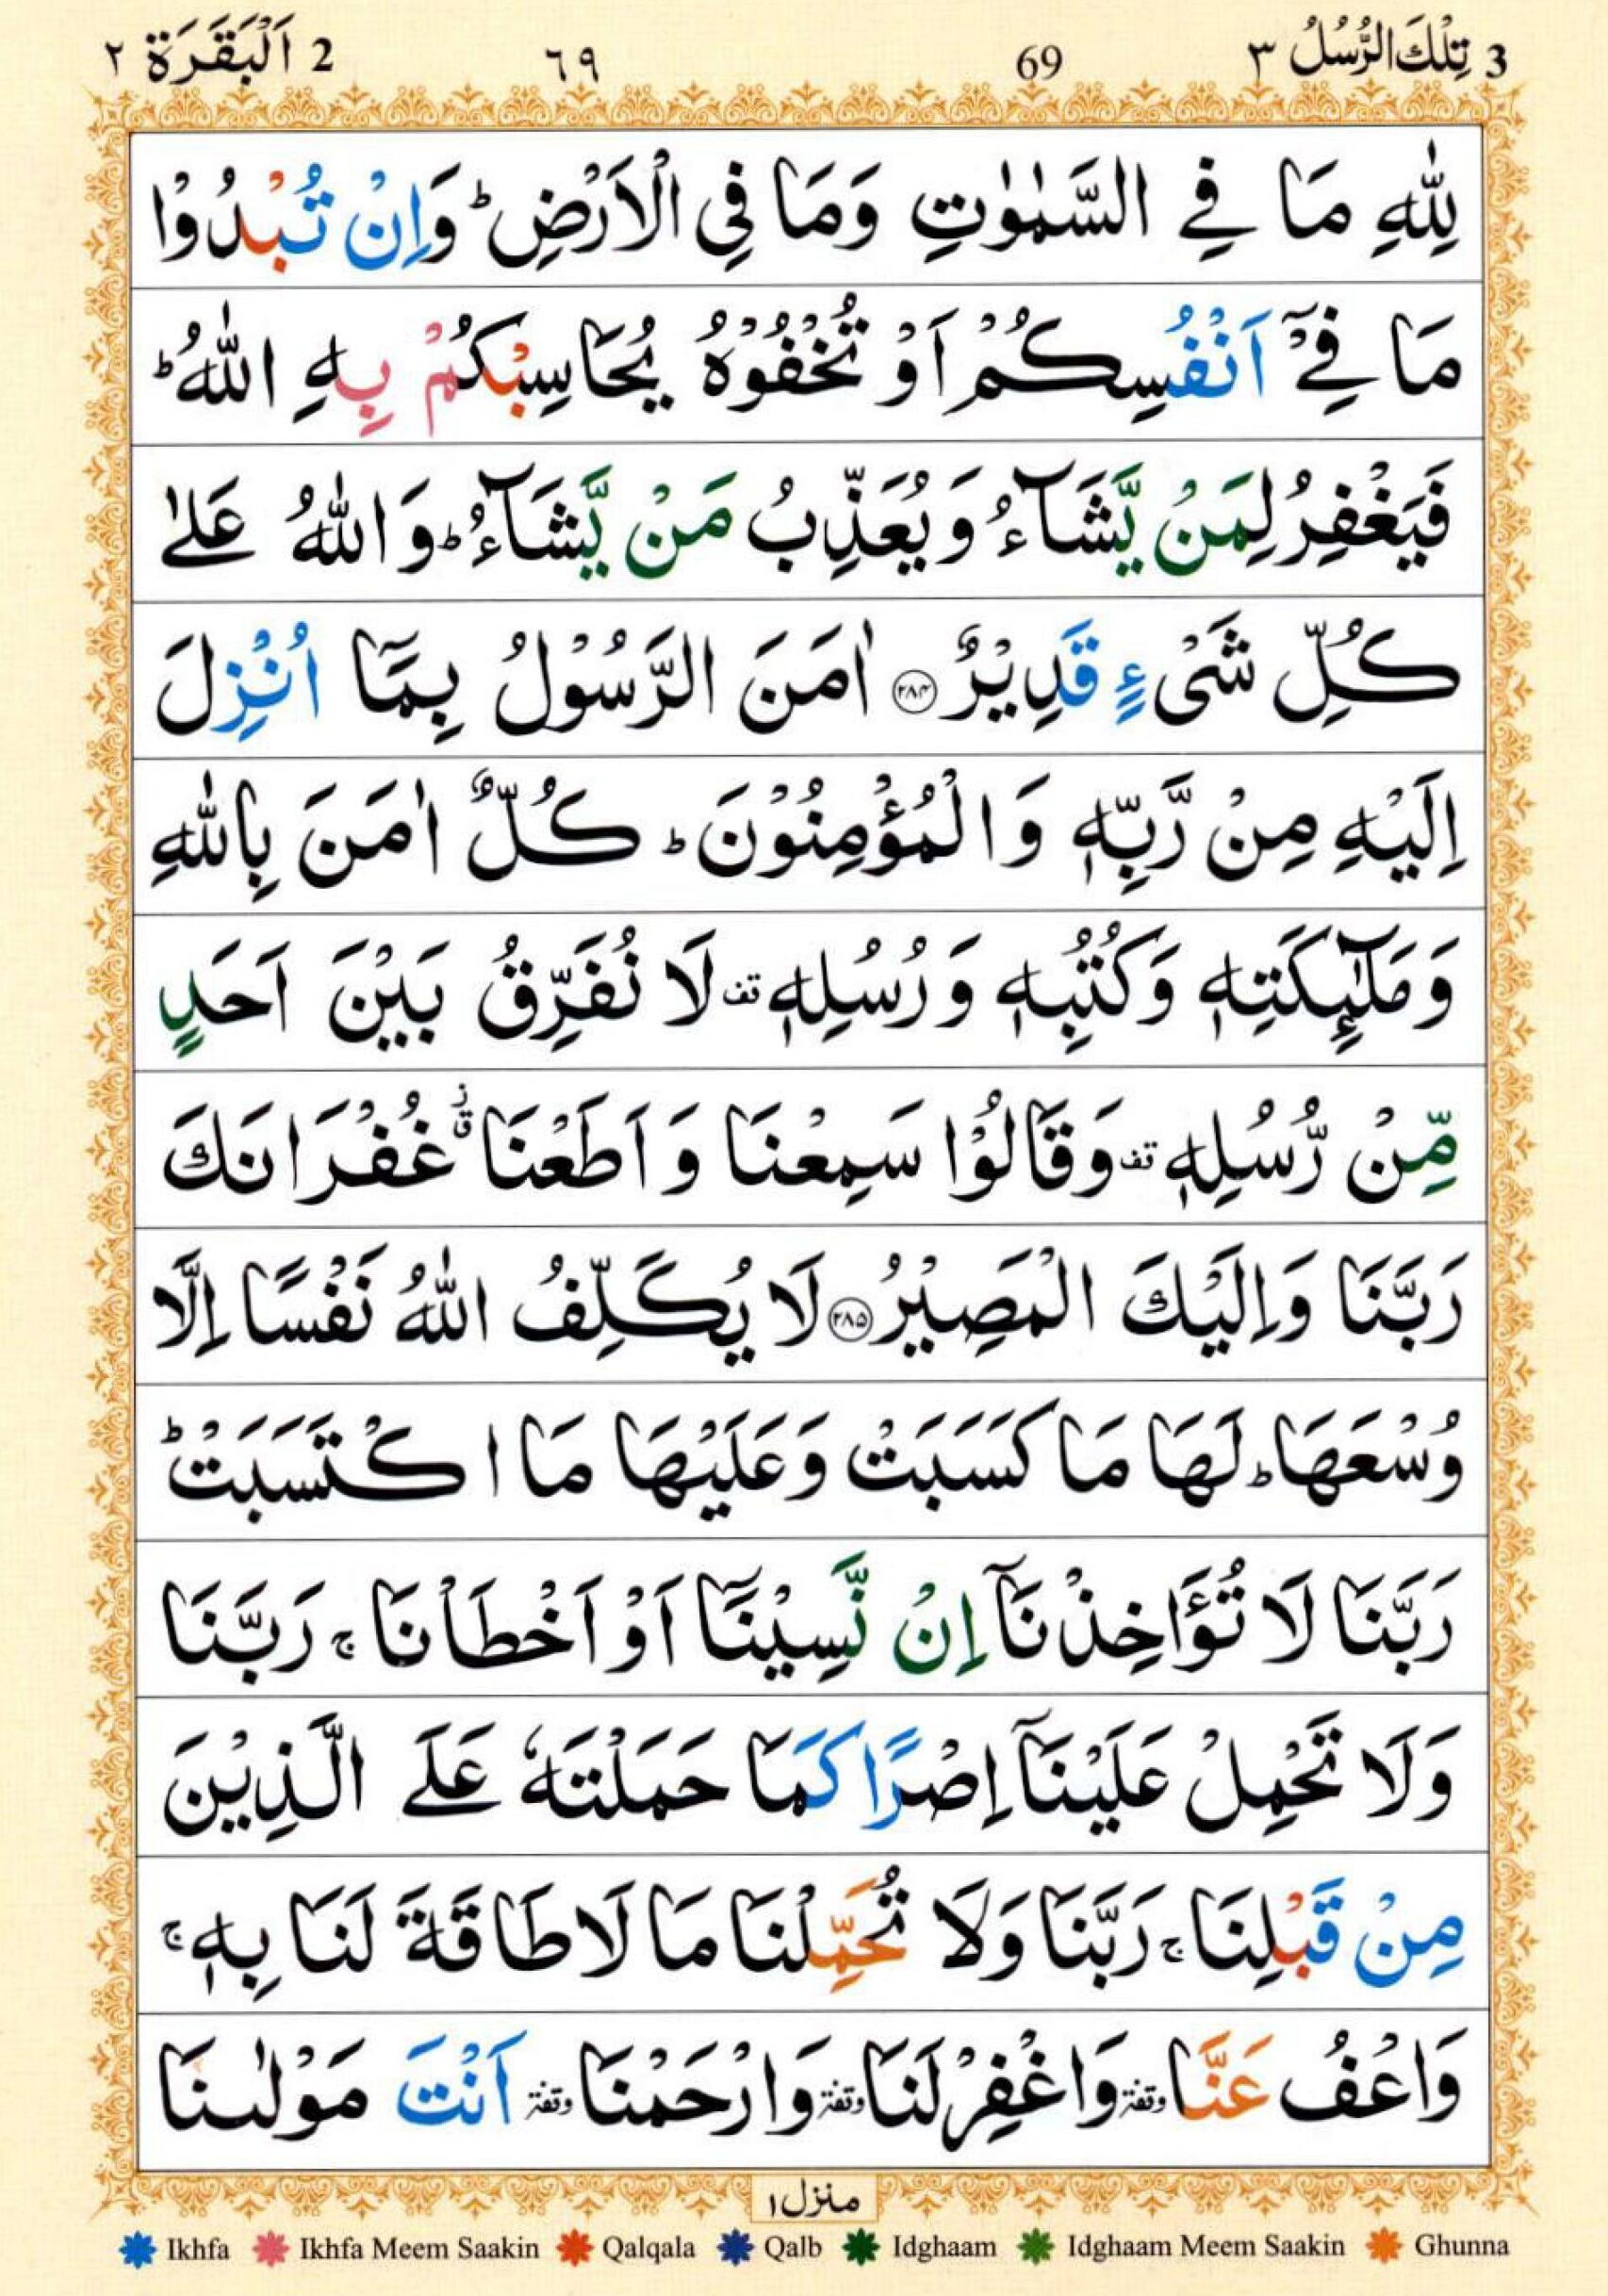 3 تِلْكَ الرُّسُلُ ٣ 69 ٦٩ 2 اَلْبَقَرَة ٢
لِلّٰهِ مَا فِے السَّمٰوٰتِ وَمَا فِي الْاَرْضِ ؕ وَاِنْ تُبْدُوْا
مَا فِيْۤ اَنْفُسِكُمْ اَوْ تُخْفُوْهُ يُحَاسِبْكُمْ بِهِ اللّٰهُ ؕ
فَيَغْفِرُ لِمَنْ يَّشَآءُ وَيُعَذِّبُ مَنْ يَّشَآءُ ؕ وَاللّٰهُ عَلٰے
كُلِّ شَیْءٍ قَدِيْرٌ ﴿۲۸۴﴾ اٰمَنَ الرَّسُوْلُ بِمَاۤ اُنْزِلَ
اِلَيْهِ مِنْ رَّبِّهٖ وَالْمُؤْمِنُوْنَ ؕ كُلٌّ اٰمَنَ بِاللّٰهِ
وَمَلٰٓئِكَتِهٖ وَكُتُبِهٖ وَرُسُلِهٖ تف لَا نُفَرِّقُ بَيْنَ اَحَدٍ
مِّنْ رُّسُلِهٖ تف وَقَالُوْا سَمِعْنَا وَاَطَعْنَا ز ق غُفْرَانَكَ
رَبَّنَا وَاِلَيْكَ الْمَصِيْرُ ﴿۲۸۵﴾ لَا يُكَلِّفُ اللّٰهُ نَفْسًا اِلَّا
وُسْعَهَا ؕ لَهَا مَا كَسَبَتْ وَعَلَيْهَا مَا اكْتَسَبَتْ ؕ
رَبَّنَا لَا تُؤَاخِذْنَاۤ اِنْ نَّسِيْنَاۤ اَوْ اَخْطَاْنَا ۚ رَبَّنَا
وَلَا تَحْمِلْ عَلَيْنَاۤ اِصْرًا كَمَا حَمَلْتَهٗ عَلَے الَّذِيْنَ
مِنْ قَبْلِنَا ۚ رَبَّنَا وَلَا تُحَمِّلْنَا مَا لَا طَاقَةَ لَنَا بِهٖ ۚ
وَاعْفُ عَنَّا وقفة وَاغْفِرْ لَنَا وقفة وَارْحَمْنَا وقفة اَنْتَ مَوْلٰىنَا
منزل ١
Ikhfa Ikhfa Meem Saakin Qalqala Qalb Idghaam Idghaam Meem Saakin Ghunna